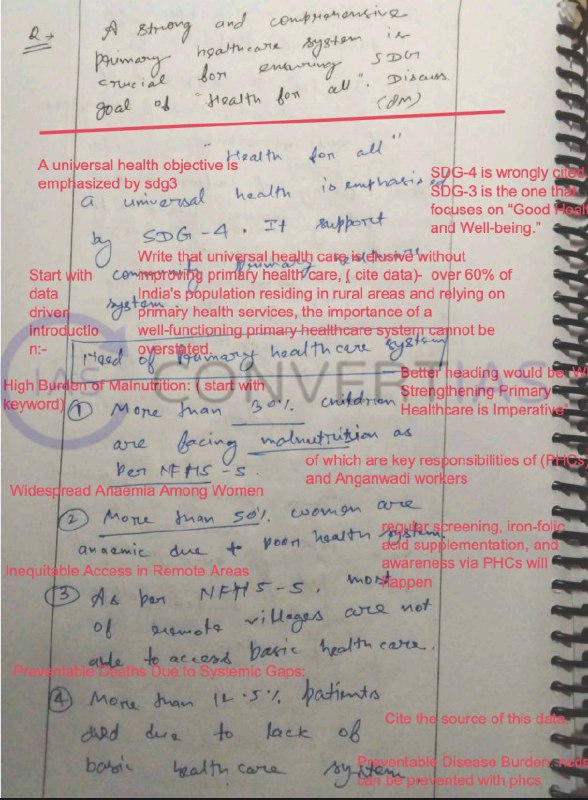 Q→ A strong and comprehensive
primary healthcare system is
crucial for ensuring SDG
goal of "Health for all". Discuss.
"Health for all"
A universal health objective is
emphasized by sdg3
SDG-4 is wrongly cited
SDG-3 is the one that
focuses on "Good Healt
and Well-being."
a universal health is emphasised
by SDG-4. It support
Write that universal health care is elusive without
improving primary health care, ( cite data)- over 60% of
India's population residing in rural areas and relying on
primary health services, the importance of a
well-functioning primary healthcare system cannot be
overstated.
Start with
data
driven
introductio
n:-
community primary
system
Need of Primary healthcare system
CONVERTIAS
IAS
Better heading would be: W
Strengthening Primary
Healthcare is Imperative
High Burden of Malnutrition: ( start with
keyword)
① More than 30% children
are facing malnutrition as
per NFHS-5.
of which are key responsibilities of (PHCs
and Anganwadi workers
Widespread Anaemia Among Women
② More than 50% women are
anaemic due to poor health system.
regular screening, iron-folic
acid supplementation, and
awareness via PHCs will
happen
Inequitable Access in Remote Areas
③ As per NFHS-5, most
of remote villages are not
able to access basic healthcare.
Preventable Deaths Due to Systemic Gaps:
④ More than 12.5% patients
died due to lack of
basic healthcare system.
Cite the source of this data
Preventable Disease Burden
can be prevented with phcs